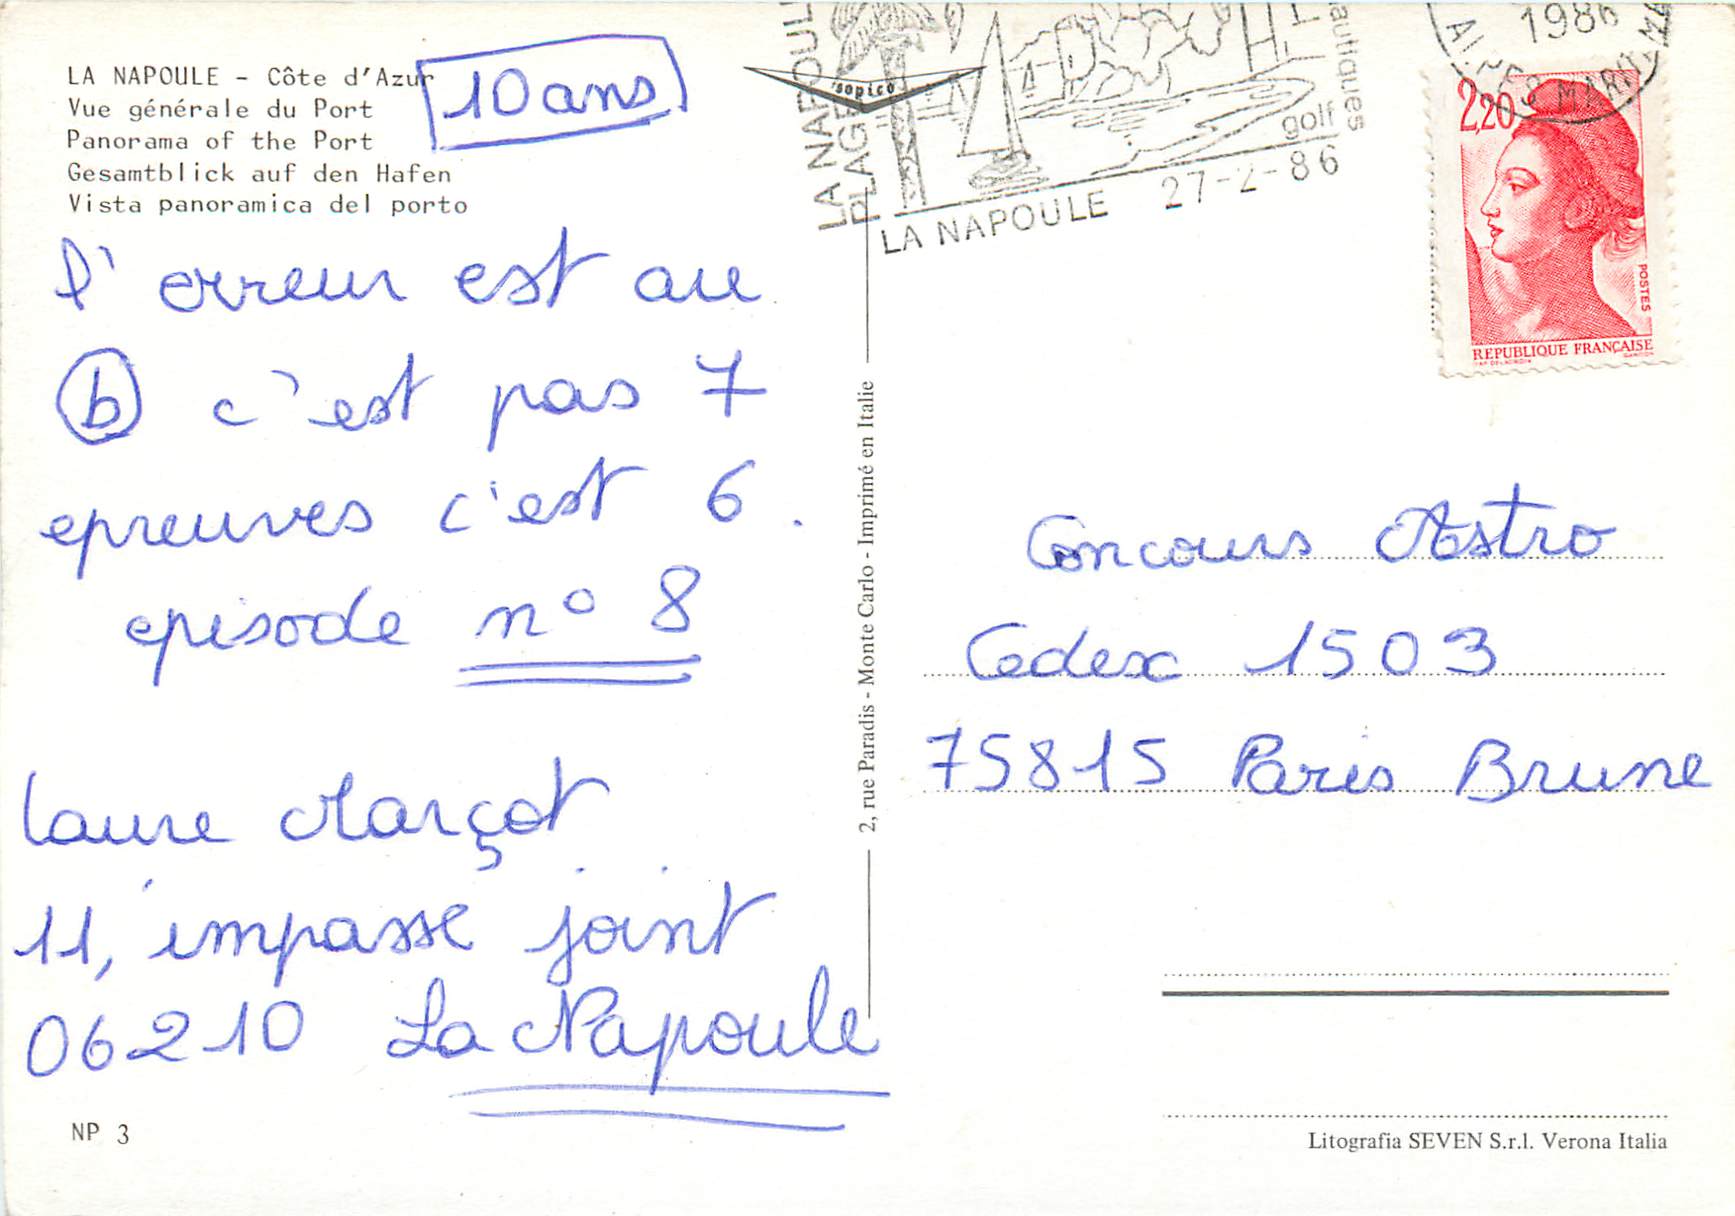 LA NAPOULE - Côte d'Azur
Vue générale du Port
Panorama of the Port
Gesamtblick auf den Hafen
Vista panoramica del porto
10 ans
l' erreur est au
b c'est pas 7
epreuves c'est 6.
episode n° 8
Laure Marçot
11, impasse joint
06210 La Napoule
NP 3
sopico
LA NAPOUL
PLAGE
golf
LA NAPOULE 27-2-86
1986
2,20
POSTES
REPUBLIQUE FRANÇAISE
2, rue Paradis - Monte Carlo - Imprimé en Italie
Concours Astro
Cedex 1503
75815 Paris Brune
Litografia SEVEN S.r.l. Verona Italia